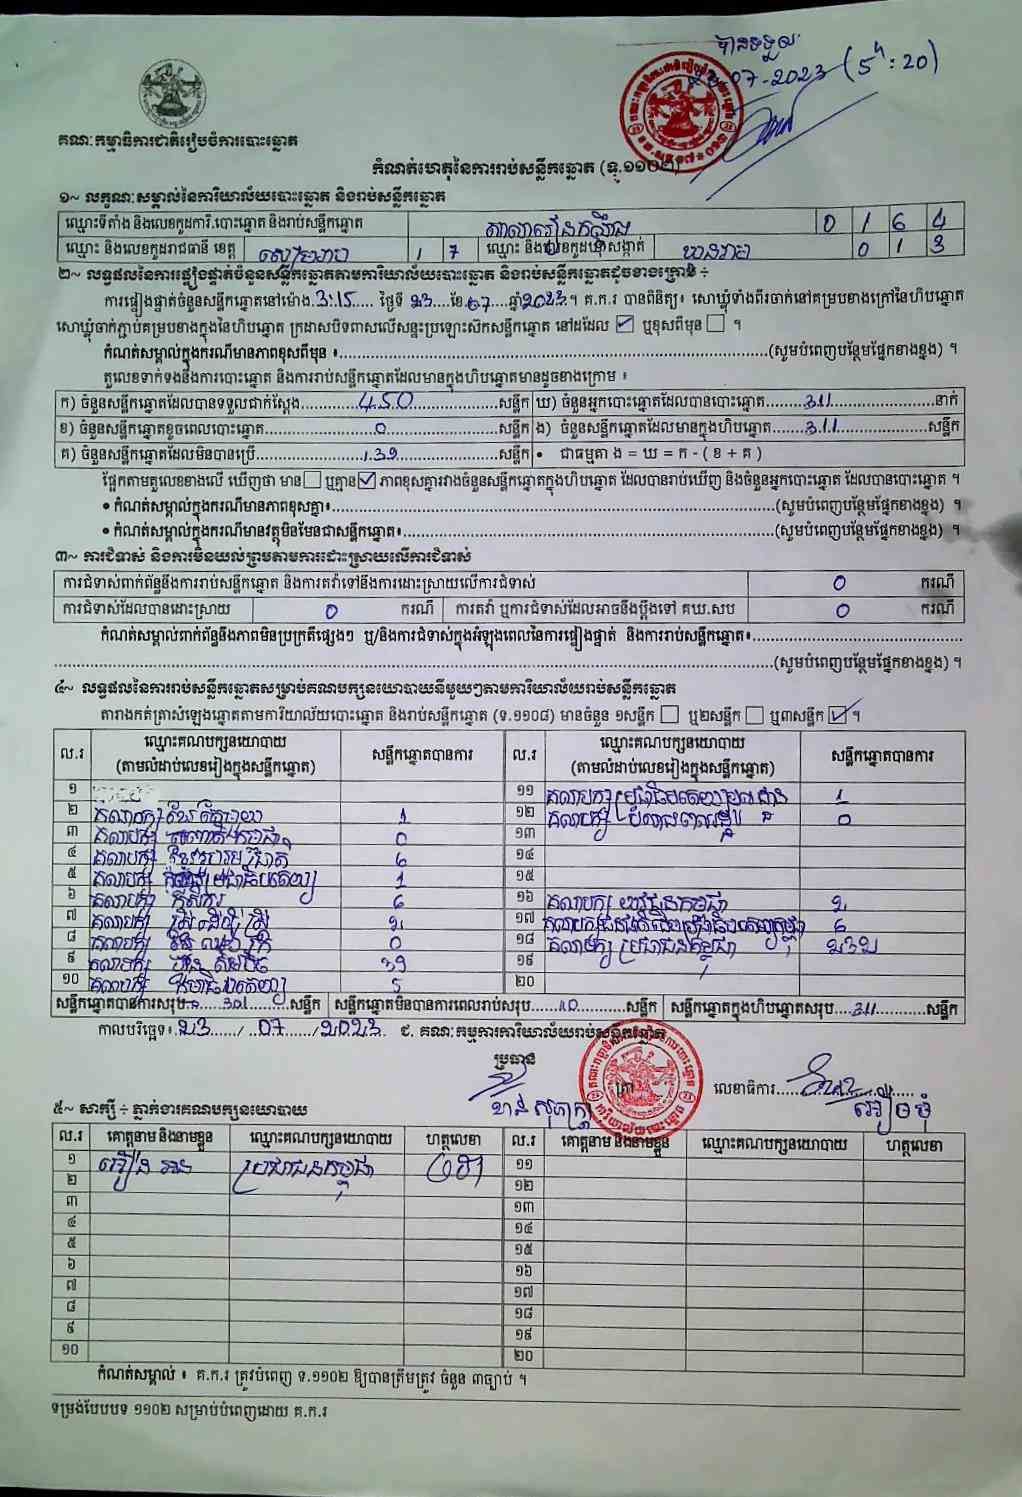 បានទទួល
07-2023 (5 : 20)
គណៈកម្មាធិការជាតិរៀបចំការបោះឆ្នោត
កំណត់ហេតុនៃការរាប់សន្លឹកឆ្នោត (ទ.១១០២)
១~ លក្ខណៈសម្គាល់នៃការិយាល័យបោះឆ្នោត និងរាប់សន្លឹកឆ្នោត
ឈ្មោះទីតាំង និងលេខកូដការិ.បោះឆ្នោត និងរាប់សន្លឹកឆ្នោត 0 1 6 4
ឈ្មោះ និងលេខកូដរាជធានី ខេត្ត សៀមរាប 1 7 ឈ្មោះ និងលេខកូដឃុំសង្កាត់ 0 1 3
២~ លទ្ធផលនៃការផ្ទៀងផ្ទាត់ចំនួនសន្លឹកឆ្នោតតាមការិយាល័យបោះឆ្នោត និងរាប់សន្លឹកឆ្នោតដូចខាងក្រោម ÷
ការផ្ទៀងផ្ទាត់ចំនួនសន្លឹកឆ្នោតនៅម៉ោង.3:15..... ថ្ងៃទី 23....ខែ.07......ឆ្នាំ2023.។ គ.ក.រ បានពិនិត្យ៖ សោឃ្លុំទាំងពីរចាក់នៅគម្របខាងក្រៅនៃហិបឆ្នោត
សោឃ្លុំចាក់ភ្ជាប់គម្របខាងក្នុងនៃហិបឆ្នោត ក្រដាសបិទពាសលើសន្ទះប្រឡោះសឹកសន្លឹកឆ្នោត នៅដដែល ☑ ឬខុសពីមុន ☐ ។
កំណត់សម្គាល់ក្នុងករណីមានភាពខុសពីមុន ៖..........(សូមបំពេញបន្ថែមផ្នែកខាងខ្នង) ។
តួលេខទាក់ទងនឹងការបោះឆ្នោត និងការរាប់សន្លឹកឆ្នោតដែលមានក្នុងហិបឆ្នោតមានដូចខាងក្រោម ៖
ក) ចំនួនសន្លឹកឆ្នោតដែលបានទទួលជាក់ស្តែង..........450..........សន្លឹក ឃ) ចំនួនអ្នកបោះឆ្នោតដែលបានបោះឆ្នោត........311..........នាក់
ខ) ចំនួនសន្លឹកឆ្នោតខូចពេលបោះឆ្នោត..........0..........សន្លឹក ង) ចំនួនសន្លឹកឆ្នោតដែលមានក្នុងហិបឆ្នោត.......311..........សន្លឹក
គ) ចំនួនសន្លឹកឆ្នោតដែលមិនបានប្រើ..........139..........សន្លឹក • ជាធម្មតា ង = ឃ = ក - ( ខ + គ )
ផ្អែកតាមតួលេខខាងលើ ឃើញថា មាន☐ ឬគ្មាន☑ ភាពខុសគ្នារវាងចំនួនសន្លឹកឆ្នោតក្នុងហិបឆ្នោត ដែលបានរាប់ឃើញ និងចំនួនអ្នកបោះឆ្នោត ដែលបានបោះឆ្នោត ។
• កំណត់សម្គាល់ក្នុងករណីមានភាពខុសគ្នា៖..........(សូមបំពេញបន្ថែមផ្នែកខាងខ្នង) ។
• កំណត់សម្គាល់ក្នុងករណីមានវត្ថុមិនមែនជាសន្លឹកឆ្នោត៖..........(សូមបំពេញបន្ថែមផ្នែកខាងខ្នង) ។
៣~ ការជំទាស់ និងការមិនយល់ព្រមតាមការដោះស្រាយលើការជំទាស់
ការជំទាស់ពាក់ព័ន្ធនឹងការរាប់សន្លឹកឆ្នោត និងការតវ៉ាទៅនឹងការដោះស្រាយលើការជំទាស់ 0 ករណី
ការជំទាស់ដែលបានដោះស្រាយ 0 ករណី ការតវ៉ា ឬការជំទាស់ដែលអាចនឹងប្តឹងទៅ គឃ.សប 0 ករណី
កំណត់សម្គាល់ពាក់ព័ន្ធនឹងភាពមិនប្រក្រតីផ្សេងៗ ឬ/និងការជំទាស់ក្នុងអំឡុងពេលនៃការផ្ទៀងផ្ទាត់ និងការរាប់សន្លឹកឆ្នោត៖..........
..........(សូមបំពេញបន្ថែមផ្នែកខាងខ្នង) ។
៤~ លទ្ធផលនៃការរាប់សន្លឹកឆ្នោតសម្រាប់គណបក្សនយោបាយនីមួយៗតាមការិយាល័យរាប់សន្លឹកឆ្នោត
តារាងកត់ត្រាសំឡេងឆ្នោតតាមការិយាល័យបោះឆ្នោត និងរាប់សន្លឹកឆ្នោត (ទ.១១០៨) មានចំនួន ១សន្លឹក ☐ ឬ២សន្លឹក ☐ ឬ៣សន្លឹក ☑ ។
ល.រ ឈ្មោះគណបក្សនយោបាយ (តាមលំដាប់លេខរៀងក្នុងសន្លឹកឆ្នោត) សន្លឹកឆ្នោតបានការ ល.រ ឈ្មោះគណបក្សនយោបាយ (តាមលំដាប់លេខរៀងក្នុងសន្លឹកឆ្នោត) សន្លឹកឆ្នោតបានការ
១ ១១ គណបក្ស 1
២ គណបក្ស ខ្មែរ 1 ១២ គណបក្ស 0
៣ គណបក្ស 0 ១៣
៤ គណបក្ស ខ្មែរ 6 ១៤
៥ គណបក្ស ប្រជាធិបតេយ្យ 1 ១៥
៦ គណបក្ស កសិករ 6 ១៦ គណបក្ស យុវជនកម្ពុជា 2
៧ គណបក្ស 2 ១៧ គណបក្ស 6
៨ គណបក្ស 0 ១៨ គណបក្ស ប្រជាជនកម្ពុជា 232
៩ គណបក្ស 39 ១៩
១០ គណបក្ស 5 ២០
សន្លឹកឆ្នោតបានការសរុប....301..........សន្លឹក សន្លឹកឆ្នោតមិនបានការពេលរាប់សរុប......10..........សន្លឹក សន្លឹកឆ្នោតក្នុងហិបឆ្នោតសរុប....311..........សន្លឹក
កាលបរិច្ឆេទ៖ 23...../..07....../2023. ជ. គណៈកម្មការការិយាល័យរាប់សន្លឹកឆ្នោត
ប្រធាន
លេខាធិការ
៥~ សាក្សី ÷ ភ្នាក់ងារគណបក្សនយោបាយ
ល.រ គោត្តនាម និងនាមខ្លួន ឈ្មោះគណបក្សនយោបាយ ហត្ថលេខា ល.រ គោត្តនាម និងនាមខ្លួន ឈ្មោះគណបក្សនយោបាយ ហត្ថលេខា
១ ប្រជាជនកម្ពុជា ១១
២ ១២
៣ ១៣
៤ ១៤
៥ ១៥
៦ ១៦
៧ ១៧
៨ ១៨
៩ ១៩
១០ ២០
កំណត់សម្គាល់ ៖ គ.ក.រ ត្រូវបំពេញ ទ.១១០២ ឱ្យបានត្រឹមត្រូវ ចំនួន ៣ច្បាប់ ។
ទម្រង់បែបបទ ១១០២ សម្រាប់បំពេញដោយ គ.ក.រ